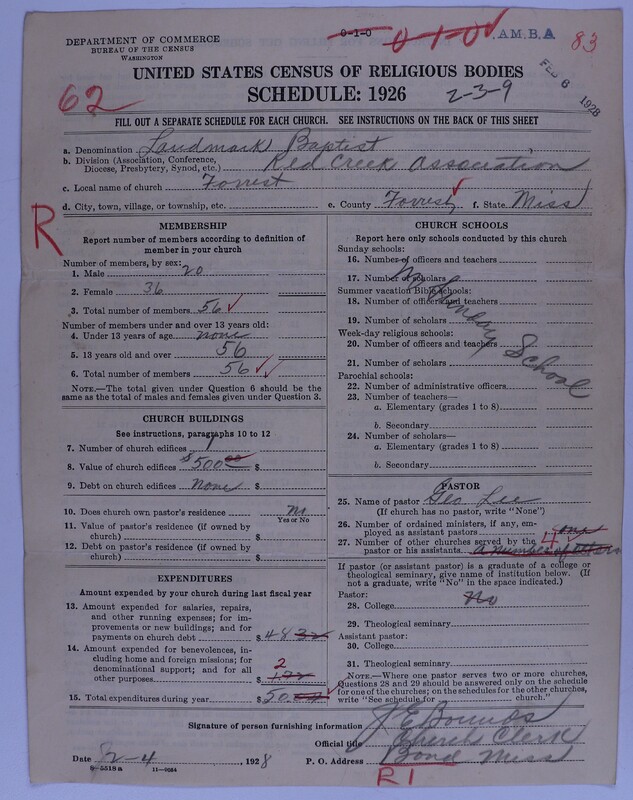 0-1-0 0-1-0 A.M.B.A 83
DEPARTMENT OF COMMERCE
BUREAU OF THE CENSUS
WASHINGTON
FEB 6 1928
UNITED STATES CENSUS OF RELIGIOUS BODIES
62 SCHEDULE: 1926 2-3-9
FILL OUT A SEPARATE SCHEDULE FOR EACH CHURCH. SEE INSTRUCTIONS ON THE BACK OF THIS SHEET
a. Denomination Landmark Baptist
b. Division (Association, Conference, Diocese, Presbytery, Synod, etc.) Red Creek Association
c. Local name of church Forrest
d. City, town, village, or township, etc. e. County Forrest f. State Miss
R
MEMBERSHIP
Report number of members according to definition of
member in your church
Number of members, by sex:
1. Male 20
2. Female 36
3. Total number of members 56
Number of members under and over 13 years old:
4. Under 13 years of age none
5. 13 years old and over 56
6. Total number of members 56
NOTE.—The total given under Question 6 should be
the same as the total of males and females given under Question 3.
CHURCH BUILDINGS
See instructions, paragraphs 10 to 12
7. Number of church edifices 1
8. Value of church edifices $500 00 $
9. Debt on church edifices none $
10. Does church own pastor's residence? no
Yes or No
11. Value of pastor's residence (if owned by
church) $
12. Debt on pastor's residence (if owned by
church) $
EXPENDITURES
Amount expended by your church during last fiscal year
13. Amount expended for salaries, repairs,
and other running expenses; for im-
provements or new buildings; and for
payments on church debt $ 48
14. Amount expended for benevolences,
including home and foreign missions; for
denominational support; and for all
other purposes $ 2
15. Total expenditures during year $ 50
CHURCH SCHOOLS
Report here only schools conducted by this church
Sunday schools:
16. Number of officers and teachers
17. Number of scholars
Summer vacation Bible schools:
18. Number of officers and teachers
19. Number of scholars
Week-day religious schools:
20. Number of officers and teachers
21. Number of scholars
No Sunday School
Parochial schools:
22. Number of administrative officers
23. Number of teachers—
a. Elementary (grades 1 to 8)
b. Secondary
24. Number of scholars—
a. Elementary (grades 1 to 8)
b. Secondary
PASTOR
25. Name of pastor Geo Lee
(If church has no pastor, write "None")
26. Number of ordained ministers, if any, em-
ployed as assistant pastors one
27. Number of other churches served by the 4
pastor or his assistants a number of others
If pastor (or assistant pastor) is a graduate of a college or
theological seminary, give name of institution below. (If
not a graduate, write "No" in the space indicated.)
Pastor:
28. College No
29. Theological seminary
Assistant pastor:
30. College
31. Theological seminary
NOTE.—Where one pastor serves two or more churches,
Questions 28 and 29 should be answered only on the schedule
for one of the churches; on the schedules for the other churches,
write "See schedule for church."
Signature of person furnishing information J E Bounds
Official title Church Clerk
Date 2-4 1928 P. O. Address Bond Miss
8-5518a 11-9034 R1